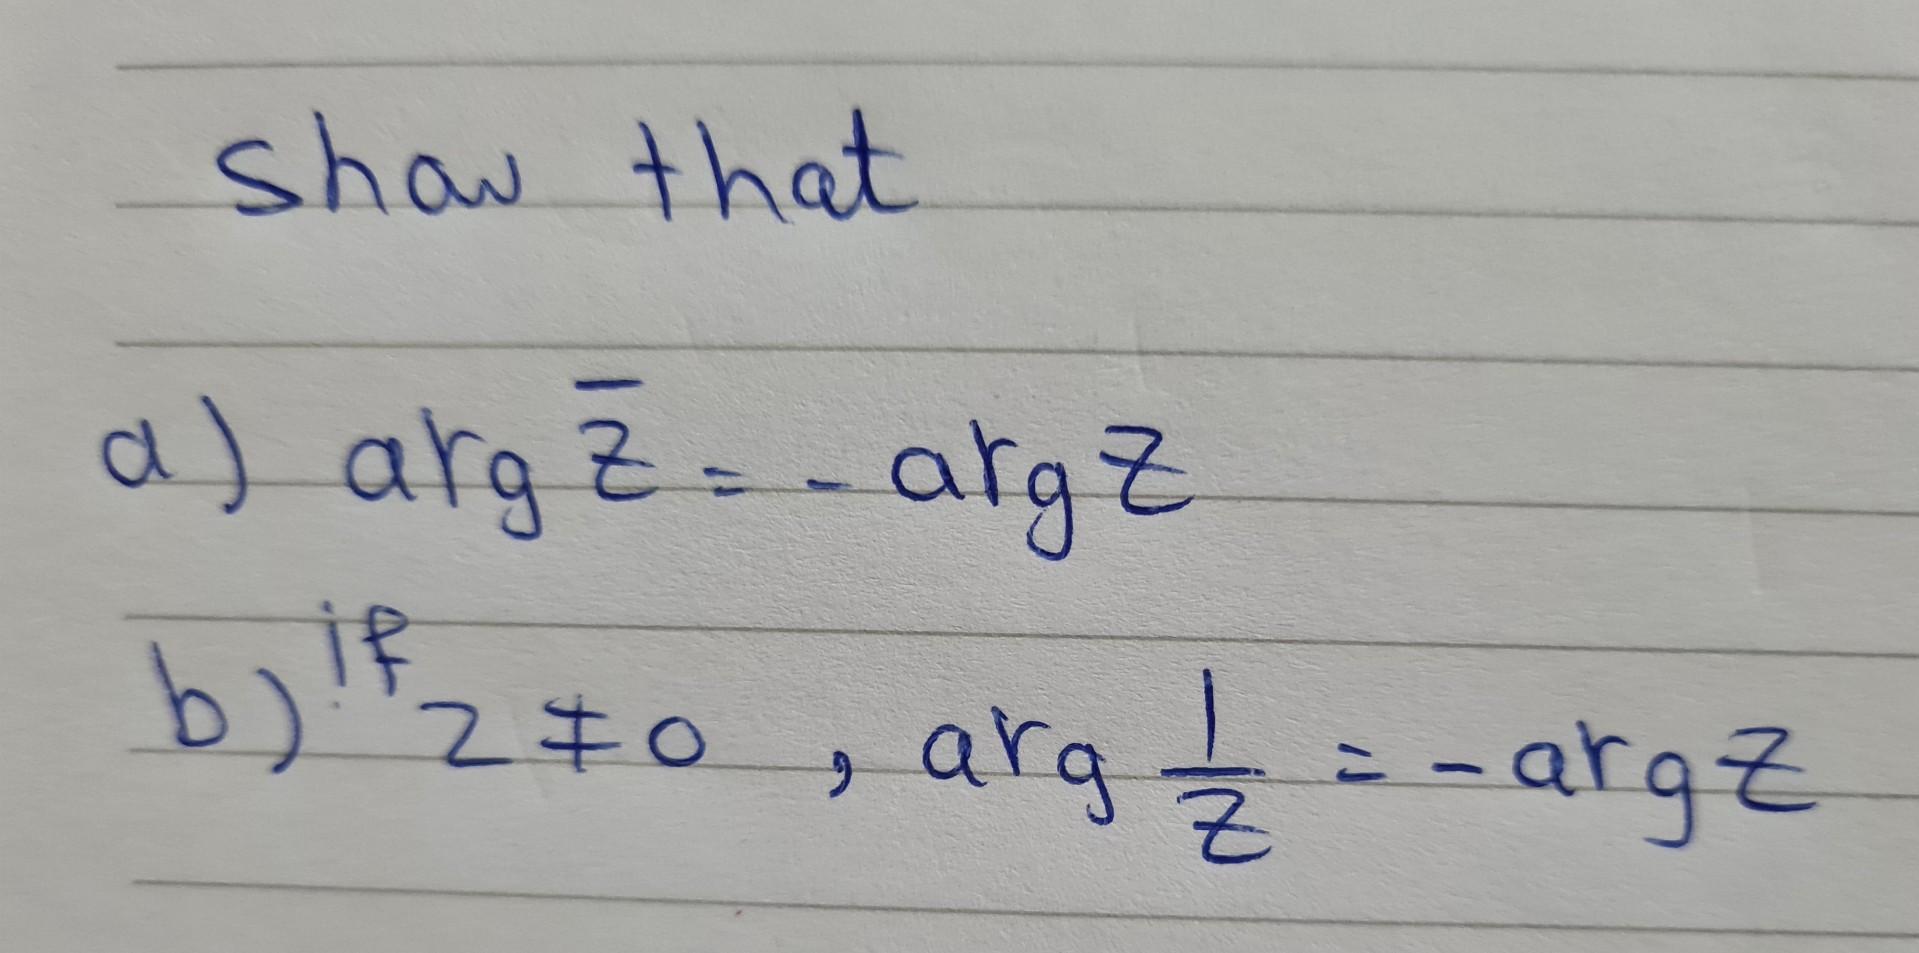 show that
a) arg z̅ = - arg z
b) if z ≠ 0 , arg 1/z = - arg z